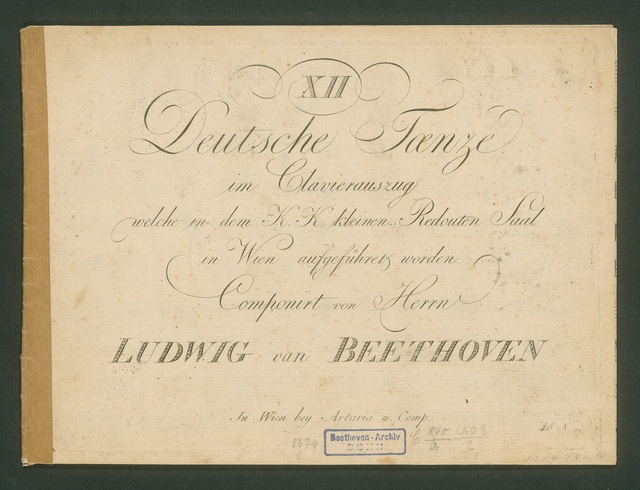 XII
Deutsche Tænze
im Clavierauszug
welche in dem K. K. kleinen Redouten Saal
in Wien aufgeführet worden
Componirt von Herrn
LUDWIG van BEETHOVEN
In Wien bey Artaria u. Comp.
5674
Beethoven-Archiv
BONN
45 x